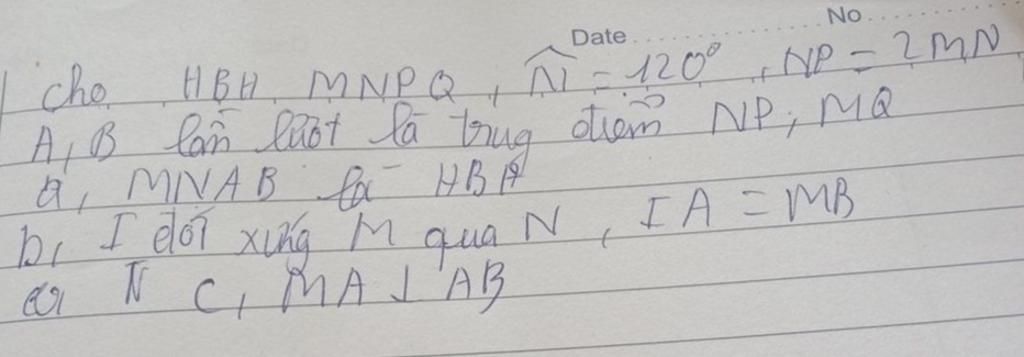 No
Date
Cho HBH MNPQ, N̂ = 120°, NP = 2MN
A, B lần lượt là trug điểm NP, MQ
a, MNAB là HBH
b, I đối xứng M qua N, IA = MB
c, MA ⊥ AB